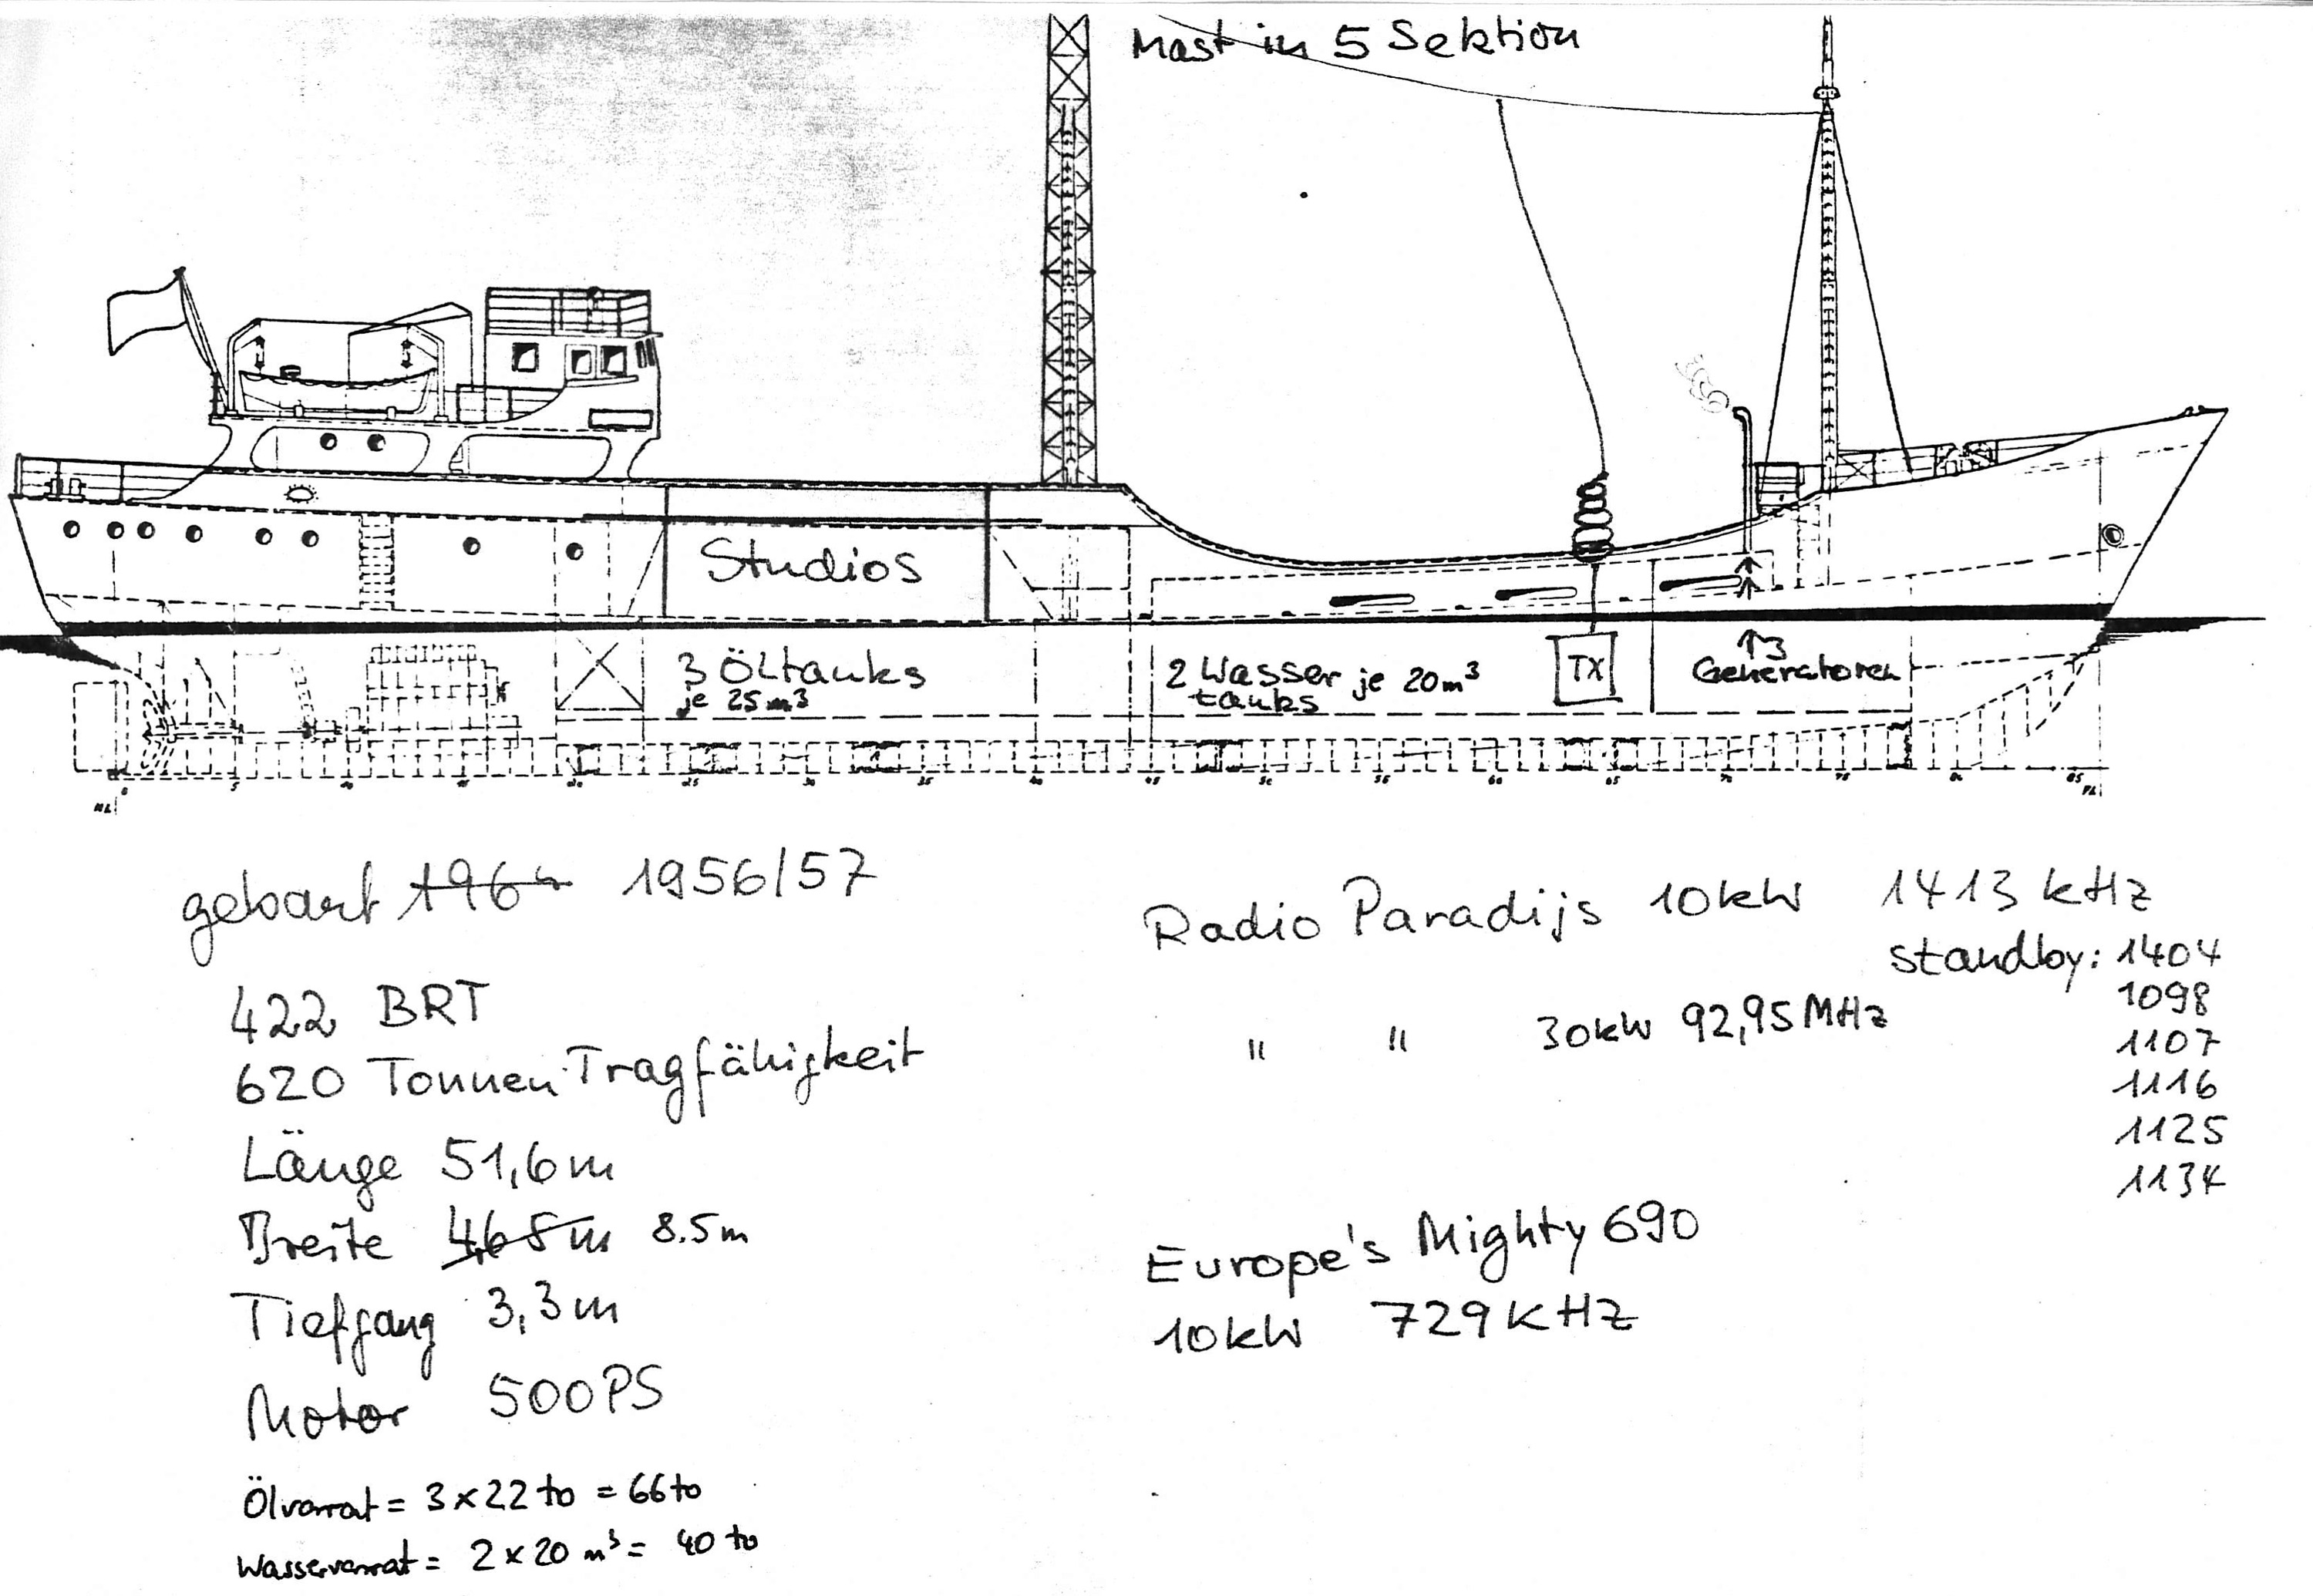 Mast in 5 Sektion
Studios
3 Öltanks
je 25 m³
2 Wasser je 20 m³
tanks
TX
↑3
Generatoren
0 5 10 15 20 25 30 35 40 45 50 55 60 65 70 75 80 85
HL
FL
gebaut 1964 1956/57
422 BRT
620 Tonnen Tragfähigkeit
Länge 51,6 m
Breite 4,68 m 8.5 m
Tiefgang 3,3 m
Motor 500 PS
Ölvorrat = 3 x 22 to = 66 to
Wasservorrat = 2 x 20 m³ = 40 to
Radio Paradijs 10 kW 1413 kHz
standby: 1404
1098
" " 30 kW 92,95 MHz
1107
1116
1125
1134
Europe's Mighty 690
10 kW 729 KHz